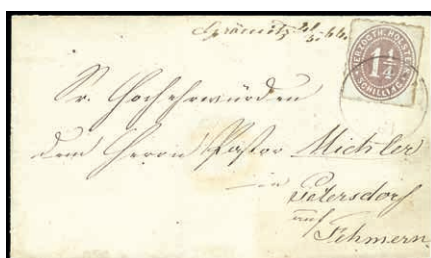 HERZOGTH. HOLSTEIN
1¼
SCHILLING
Sr. Hochehrwürden
dem Herrn Pastor Michler
in
Petersdorf
auf
Fehmern.